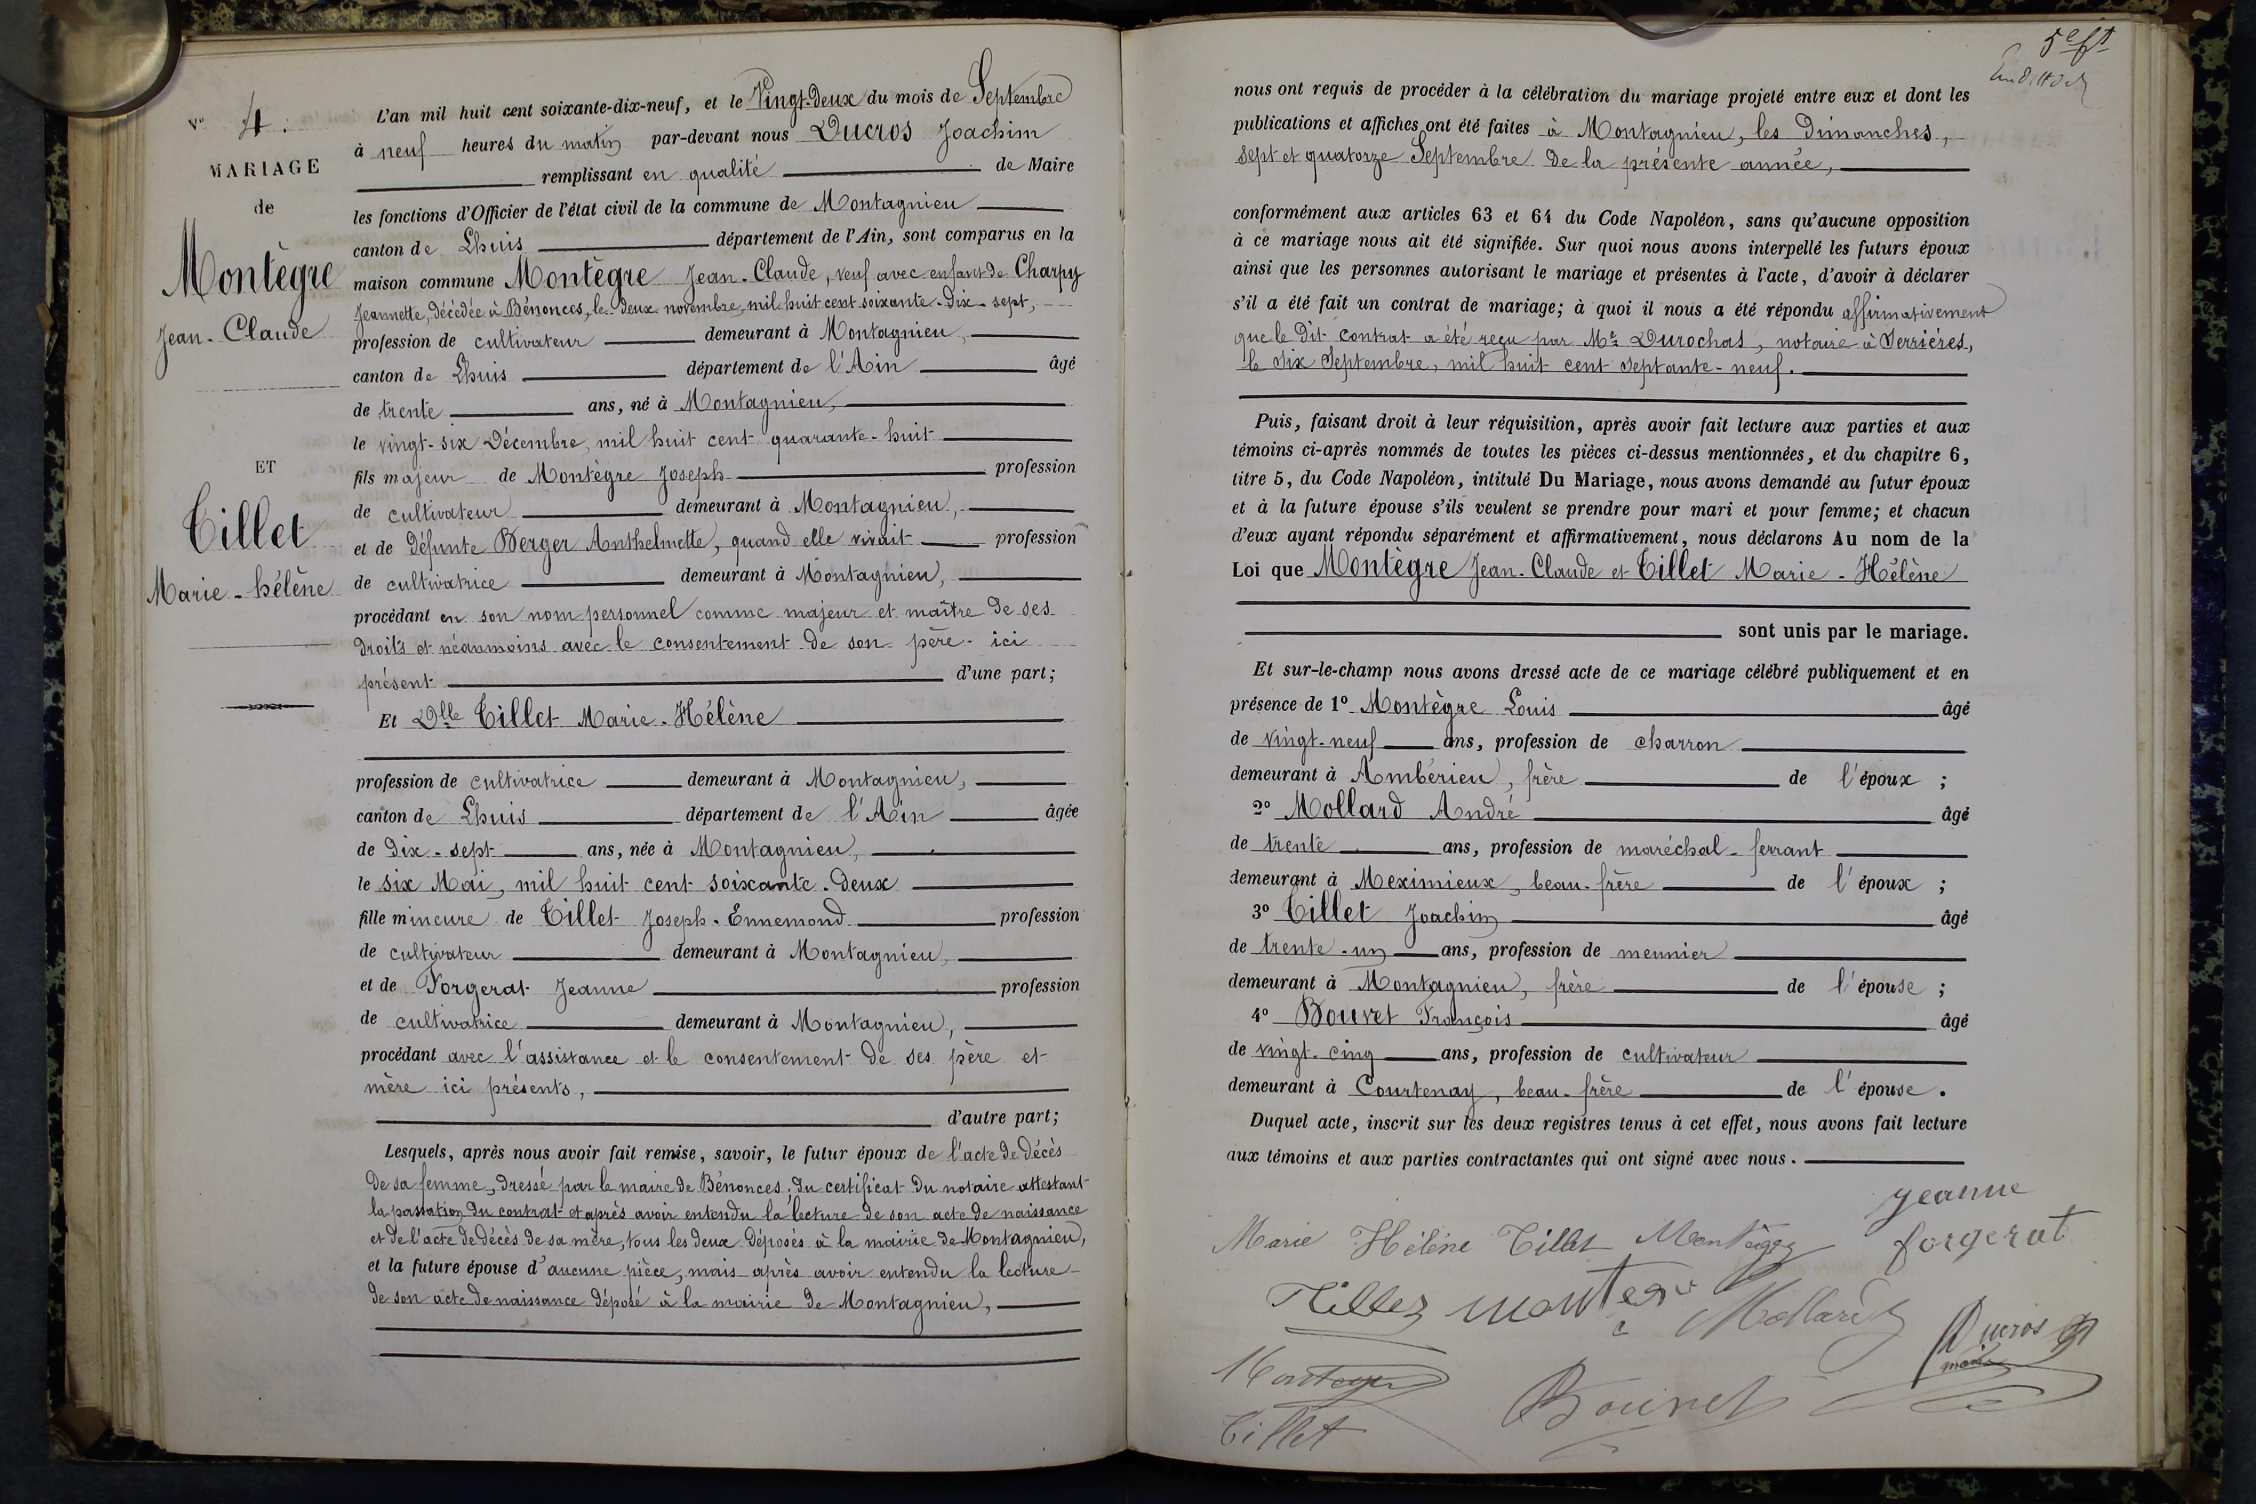 N° 4.
MARIAGE
de
Montègre
Jean-Claude
ET
Tillet
Marie-hélène
L'an mil huit cent soixante-dix-neuf, et le Vingt-Deux du mois de Septembre
à neuf heures du matin par-devant nous Ducros Joachim
remplissant en qualité de Maire
les fonctions d'Officier de l'état civil de la commune de Montagnieu
canton de Lhuis département de l'Ain, sont comparus en la
maison commune Montègre Jean-Claude, veuf avec enfant de Charpy
Jeannette, décédée à Bénonces, le deux novembre, mil huit cent soixante-dix-sept,
profession de cultivateur demeurant à Montagnieu,
canton de Lhuis département de l'Ain âgé
de trente ans, né à Montagnieu,
le vingt-six Décembre, mil huit cent quarante-huit
fils majeur de Montègre Joseph profession
de cultivateur demeurant à Montagnieu,
et de défunte Berger Anthelmette, quand elle vivait profession
de cultivatrice demeurant à Montagnieu,
procédant en son nom personnel comme majeur et maître de ses
droits et néanmoins avec le consentement de son père ici
présent d'une part;
Et Dlle Tillet Marie-Hélène
profession de cultivatrice demeurant à Montagnieu,
canton de Lhuis département de l'Ain âgée
de dix-sept ans, née à Montagnieu,
le six Mai, mil huit cent soixante-deux
fille mineure de Tillet Joseph-Ennemond profession
de cultivateur demeurant à Montagnieu,
et de Forgerat Jeanne profession
de cultivatrice demeurant à Montagnieu,
procédant avec l'assistance et le consentement de ses père et
mère ici présents,
d'autre part;
Lesquels, après nous avoir fait remise, savoir, le futur époux de l'acte de décès
de sa femme, dressé par le maire de Bénonces; du certificat du notaire attestant
la passation du contrat et après avoir entendu la lecture de son acte de naissance
et de l'acte de décès de sa mère, tous les deux déposés à la mairie de Montagnieu,
et la future épouse d'aucune pièce, mais après avoir entendu la lecture
de son acte de naissance déposé à la mairie de Montagnieu,
5e ft
nous ont requis de procéder à la célébration du mariage projeté entre eux et dont les
publications et affiches ont été faites à Montagnieu, les dimanches,
sept et quatorze Septembre de la présente année,
conformément aux articles 63 et 64 du Code Napoléon, sans qu'aucune opposition
à ce mariage nous ait été signifiée. Sur quoi nous avons interpellé les futurs époux
ainsi que les personnes autorisant le mariage et présentes à l'acte, d'avoir à déclarer
s'il a été fait un contrat de mariage; à quoi il nous a été répondu affirmativement
que le dit contrat a été reçu par Me Durochat, notaire à Serrières,
le six Septembre, mil huit cent septante-neuf.
Puis, faisant droit à leur réquisition, après avoir fait lecture aux parties et aux
témoins ci-après nommés de toutes les pièces ci-dessus mentionnées, et du chapitre 6,
titre 5, du Code Napoléon, intitulé Du Mariage, nous avons demandé au futur époux
et à la future épouse s'ils veulent se prendre pour mari et pour femme; et chacun
d'eux ayant répondu séparément et affirmativement, nous déclarons Au nom de la
Loi que Montègre Jean-Claude et Tillet Marie-Hélène
sont unis par le mariage.
Et sur-le-champ nous avons dressé acte de ce mariage célébré publiquement et en
présence de 1° Montègre Louis âgé
de vingt-neuf ans, profession de charron
demeurant à Ambérieu, frère de l'époux ;
2° Mollard André âgé
de trente ans, profession de maréchal-ferrant
demeurant à Meximieux, beau-frère de l'époux ;
3° Tillet Joachim âgé
de trente-un ans, profession de meunier
demeurant à Montagnieu, frère de l'épouse ;
4° Bouvet François âgé
de vingt-cinq ans, profession de cultivateur
demeurant à Courtenay, beau-frère de l'épouse.
Duquel acte, inscrit sur les deux registres tenus à cet effet, nous avons fait lecture
aux témoins et aux parties contractantes qui ont signé avec nous.
Jeanne
Marie Hélène Tillet Montègre forgerat
Tillet Mollard
Ducros
maire
Bouvet
Tillet